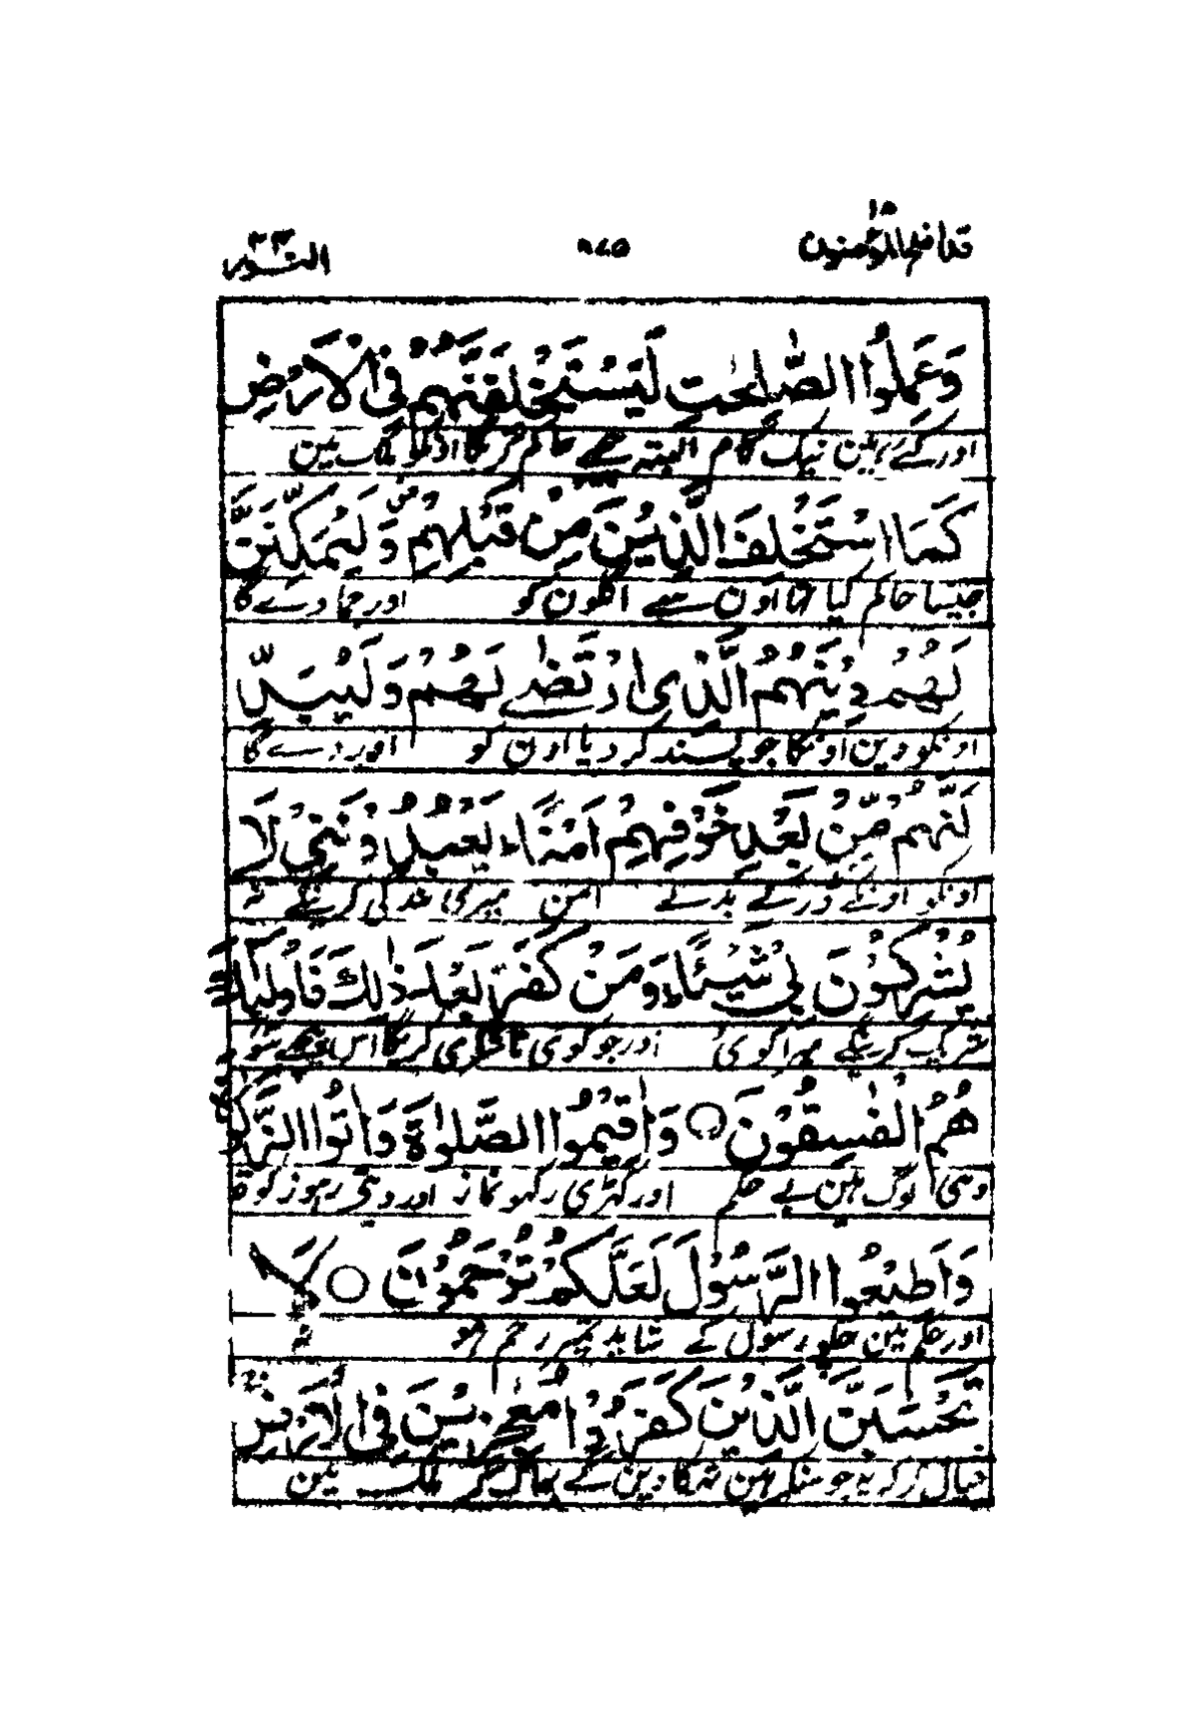 قد افلح المؤمنون ١٨ ٥٧٥ النور ٢٤
وَعَمِلُوا الصّٰلِحٰتِ لَيَسْتَخْلِفَنَّهُمْ فِى الْاَرْضِ
اور کئے ہین نیک کام البتہ حاکم کریگا اونکو ملک مین
كَمَا اسْتَخْلَفَ الَّذِيْنَ مِنْ قَبْلِهِمْ وَلَيُمَكِّنَنَّ
جیسا حاکم کیا تھا اون سے اگلون کو اور جما دے گا
لَهُمْ دِيْنَهُمُ الَّذِى ارْتَضٰى لَهُمْ وَلَيُبَدِّ
اونکو دین اونکا جو پسند کر دیا اون کو اور دے گا
لَنَّهُمْ مِّنْ بَعْدِ خَوْفِهِمْ اَمْنًا يَعْبُدُوْنَنِىْ لَا
اونکو اونکے ڈر کے بدلے امن میری بندگی کرینگے نہ
يُشْرِكُوْنَ بِىْ شَيْئًا وَمَنْ كَفَرَ بَعْدَ ذٰلِكَ فَاُولٰٓئِكَ
شریک کرینگے میرا کوئی اور جو کوئی ناشکری کریگا اس پیچھے سو
هُمُ الْفٰسِقُوْنَ ۝ وَاَقِيْمُوا الصَّلٰوةَ وَاٰتُوا الزَّكٰوةَ
وہی لوگ ہین بے حکم اور کھڑی رکھو نماز اور دیتی رہو زکوۃ
وَاَطِيْعُوا الرَّسُوْلَ لَعَلَّكُمْ تُرْحَمُوْنَ ۝ لَا
اور حکم مین چلو رسول کے شاید تمپر رحم ہو نہ
تَحْسَبَنَّ الَّذِيْنَ كَفَرُوْا مُعْجِزِيْنَ فِى الْاَرْضِ
خیال کر کہ یہ جو منکر ہین تھکا دین گے بھاگ کر ملک مین